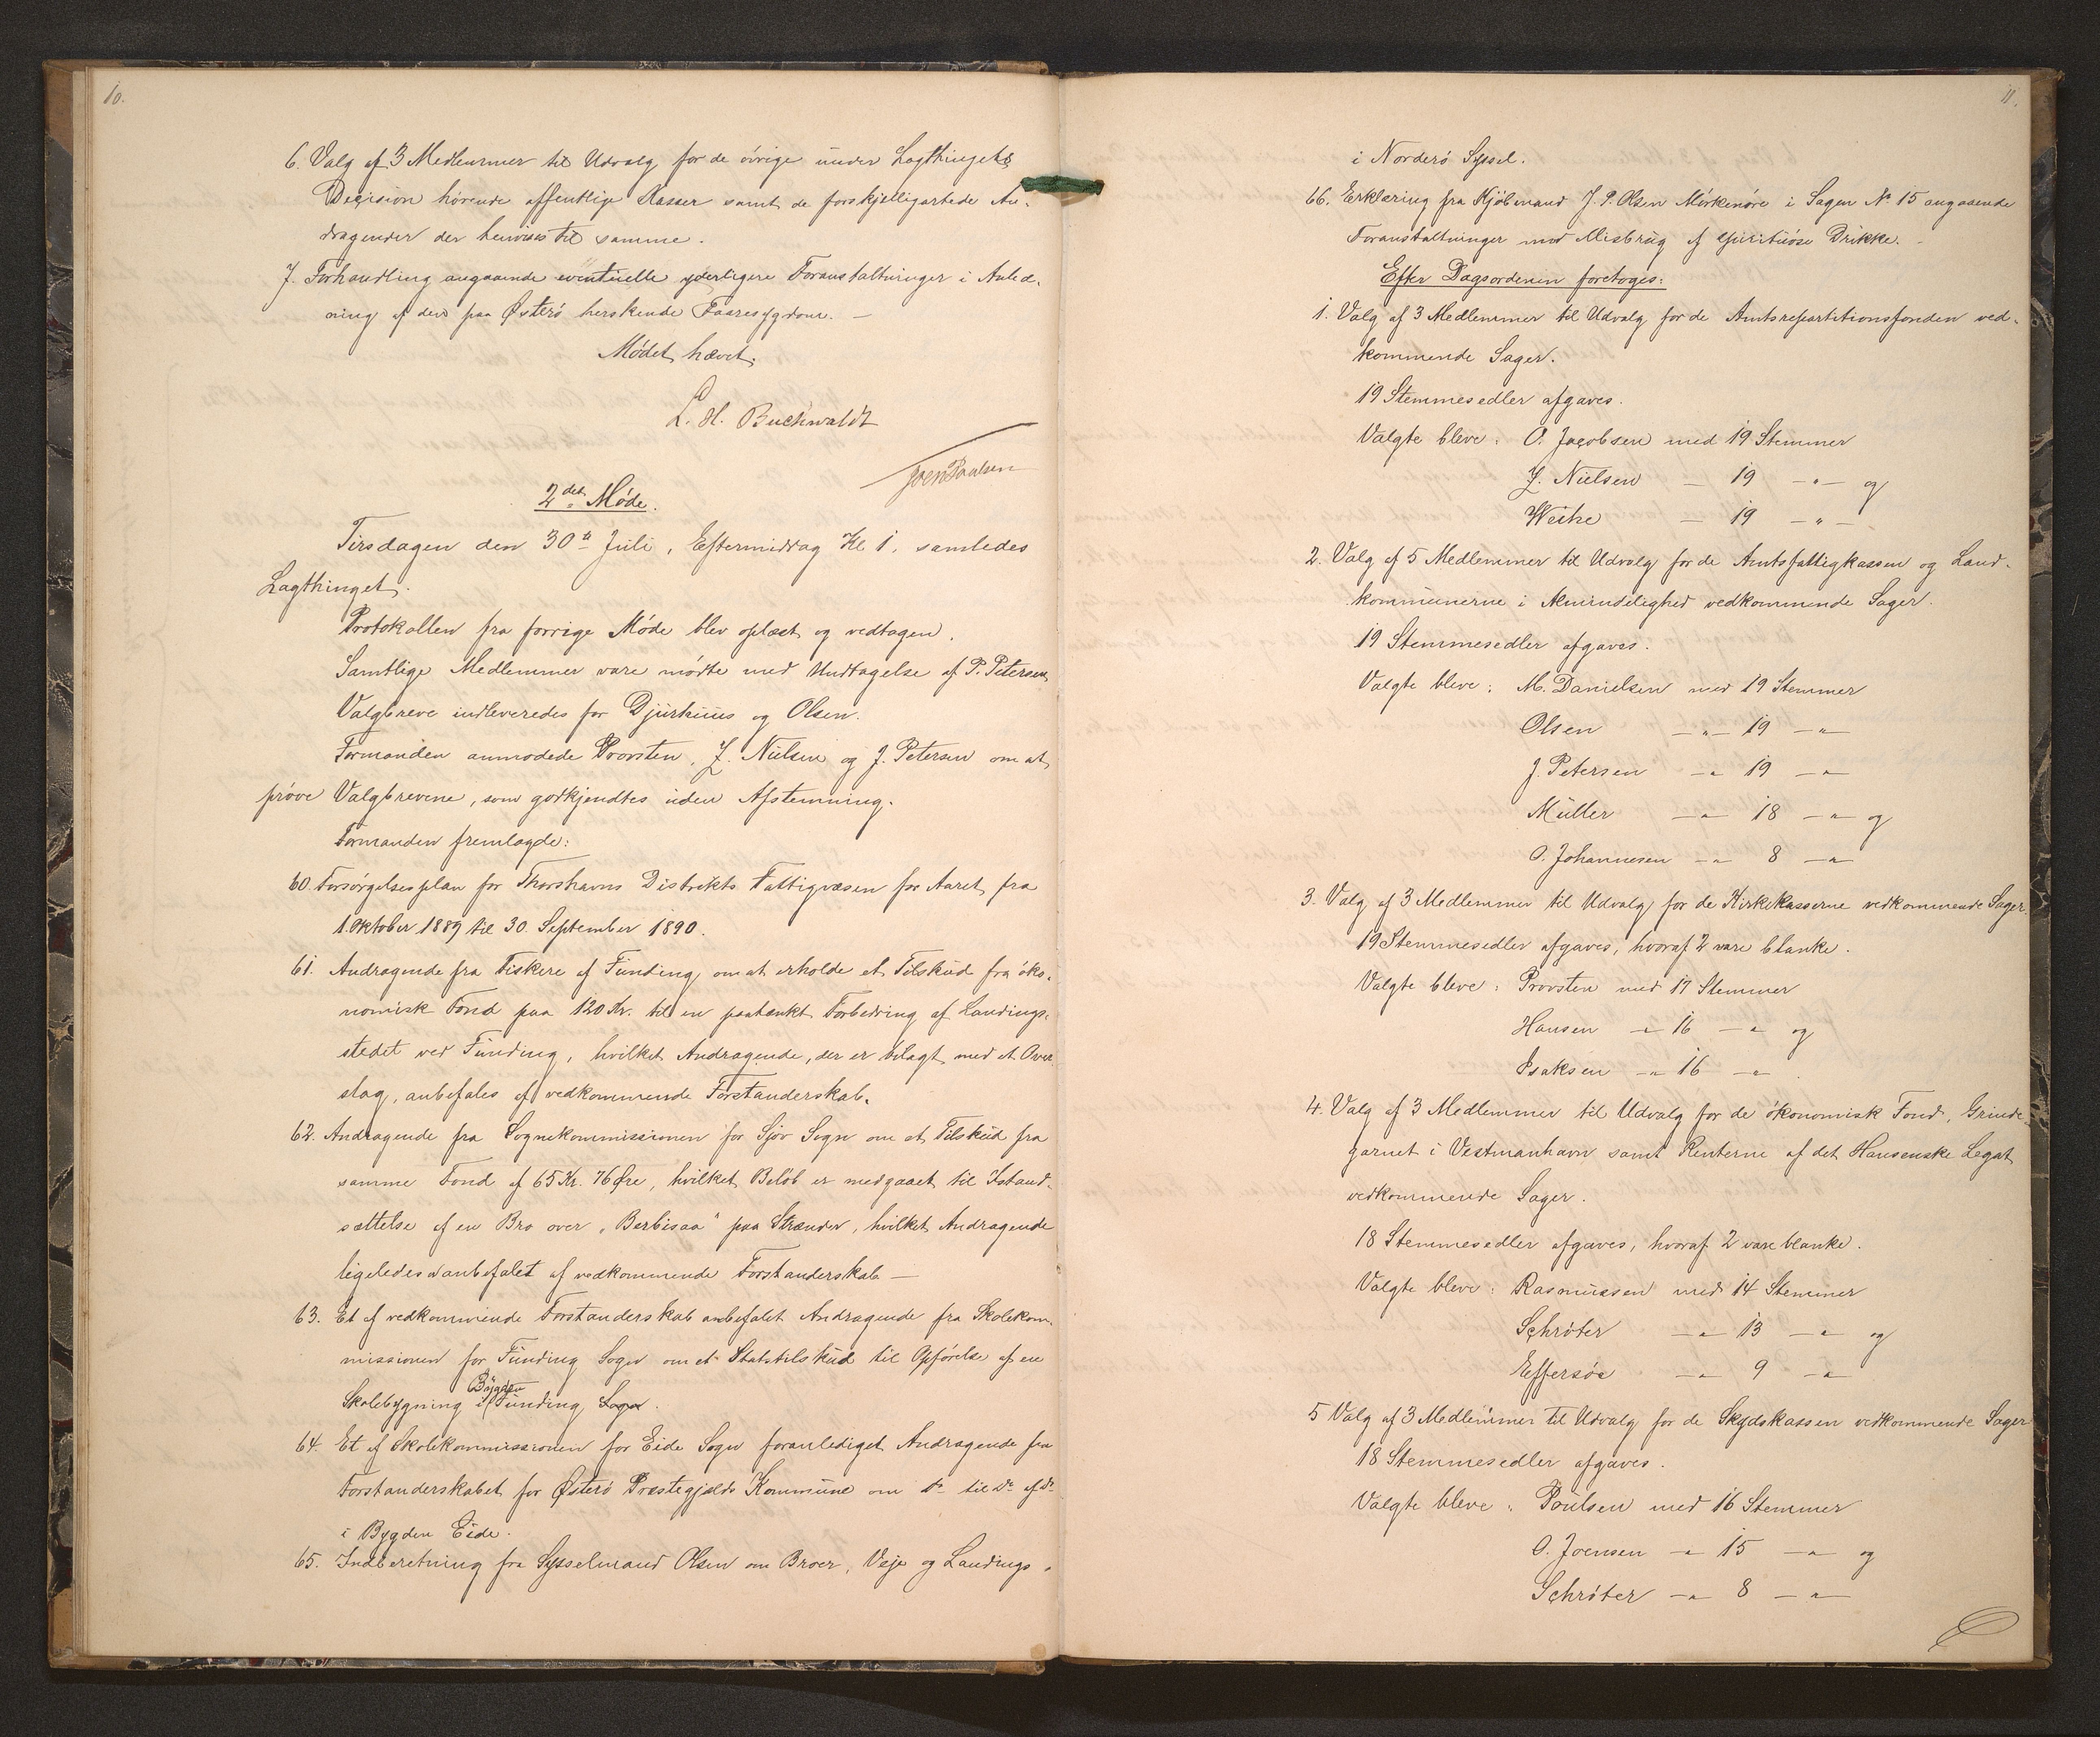 10.
6. Valg af 3 Medlemmer til Udvalg for de øvrige under Lagthingets
Decision hørende offentlige Kasser samt de forskjelligartede An-
dragender der henvises til samme.
7. Forhandling angaaende eventuelle yderligere Foranstaltninger i Anled-
ning af den paa Østerø herskende Faaresygdom. —
Mødet hævet.
L. H. Buchwaldt
Joen Poulsen
2det Møde.
Tirsdagen den 30te Juli, Eftermiddag Kl 1. samledes
Lagthinget.
Protokollen fra forrige Møde blev oplæst og vedtagen.
Samtlige Medlemmer vare mødte med Undtagelse af P. Petersen,
Valgbreve indleveredes for Djurhuus og Olsen.
Formanden anmodede Provsten, Z. Nielsen og J. Petersen om at
prøve Valgbrevene, som godkjendtes uden Afstemning.
Formanden fremlagde:
60. Forsørgelsesplan for Thorshavns Distrikts Fattigvæsen for Aaret fra
1. Oktober 1889 til 30. September 1890.
61. Andragende fra Fiskere af Funding om at erholde et Tilskud fra øko-
nomisk Fond paa 120 Kr. til en paatænkt Forbedring af Landings-
stedet ved Funding, hvilket Andragende, der er bilagt med et Over-
slag, anbefales af vedkommende Forstanderskab.
62. Andragende fra Sognekommissionen for Sjov Sogn om et Tilskud fra
samme Fond af 65 Kr. 76 Øre, hvilket Beløb er medgaaet til Istand-
sættelse af en Bro over „Berbisaa“ paa Strænder, hvilket Andragende
ligeledes anbefalet af vedkommende Forstanderskab —
63. Et af vedkommende Forstanderskab anbefalet Andragende fra Skolekom-
missionen for Funding Sogn om et Statstilskud til Opførelse af en
Skolebygning i Bygden Funding Sogn.
64. Et af Skolekommissionen for Eide Sogn foranlediget Andragende fra
Forstanderskabet for Østerø Præstegjælds Kommune om do til do af do
i Bygden Eide.
65. Indberetning fra Sysselmand Olsen om Broer, Veje og Landings-
11.
i Norderø Syssel.
66. Erklæring fra Kjøbmand J. P. Olsen Mörkenøre i Sagen No 15 angaaende
Foranstaltninger mod Misbrug af spirituøse Drikke. –
Efter Dagsordenen foretoges:
1. Valg af 3 Medlemmer til Udvalg for de Amtsrepartitionsfonden ved-
kommende Sager.
19 Stemmesedler afgaves.
Valgte bleve: O. Jacobsen med 19 Stemmer
Z. Nielsen — 19 — " — og
Weihe — 19 — " —.
2. Valg af 5 Medlemmer til Udvalg for de Amtsfattigkassen og Land-
kommunerne i Almindelighed vedkommende Sager.
19 Stemmesedler afgaves.
Valgte bleve: M. Danielsen med 19 Stemmer
Olsen — " — 19 — "
J. Petersen — " 19 — "
Müller — " 18 — " og
O. Johannesen — " 8 — "
3. Valg af 3 Medlemmer til Udvalg for de Kirkekasserne vedkommende Sager.
19 Stemmesedler afgaves, hvoraf 2 vare blanke.
Valgte bleve: Provsten med 17 Stemmer
Hansen — " 16 — " og
Isaksen — " 16 — ".
4. Valg af 3 Medlemmer til Udvalg for de økonomisk Fond, Grinde-
garnet i Vestmanhavn samt Renterne af det Hansenske Legat
vedkommende Sager.
18 Stemmesedler afgaves, hvoraf 2 vare blanke.
Valgte bleve: Rasmussen med 14 Stemmer
Schrøter — " 13 — " og
Effersøe — " 9 — "
5 Valg af 3 Medlemmer til Udvalg for de Skydskassen vedkommende Sager
18 Stemmesedler afgaves.
Valgte bleve: Poulsen med 16 Stemmer
O. Joensen — " 15 — " og
Schrøter — " 8 — "